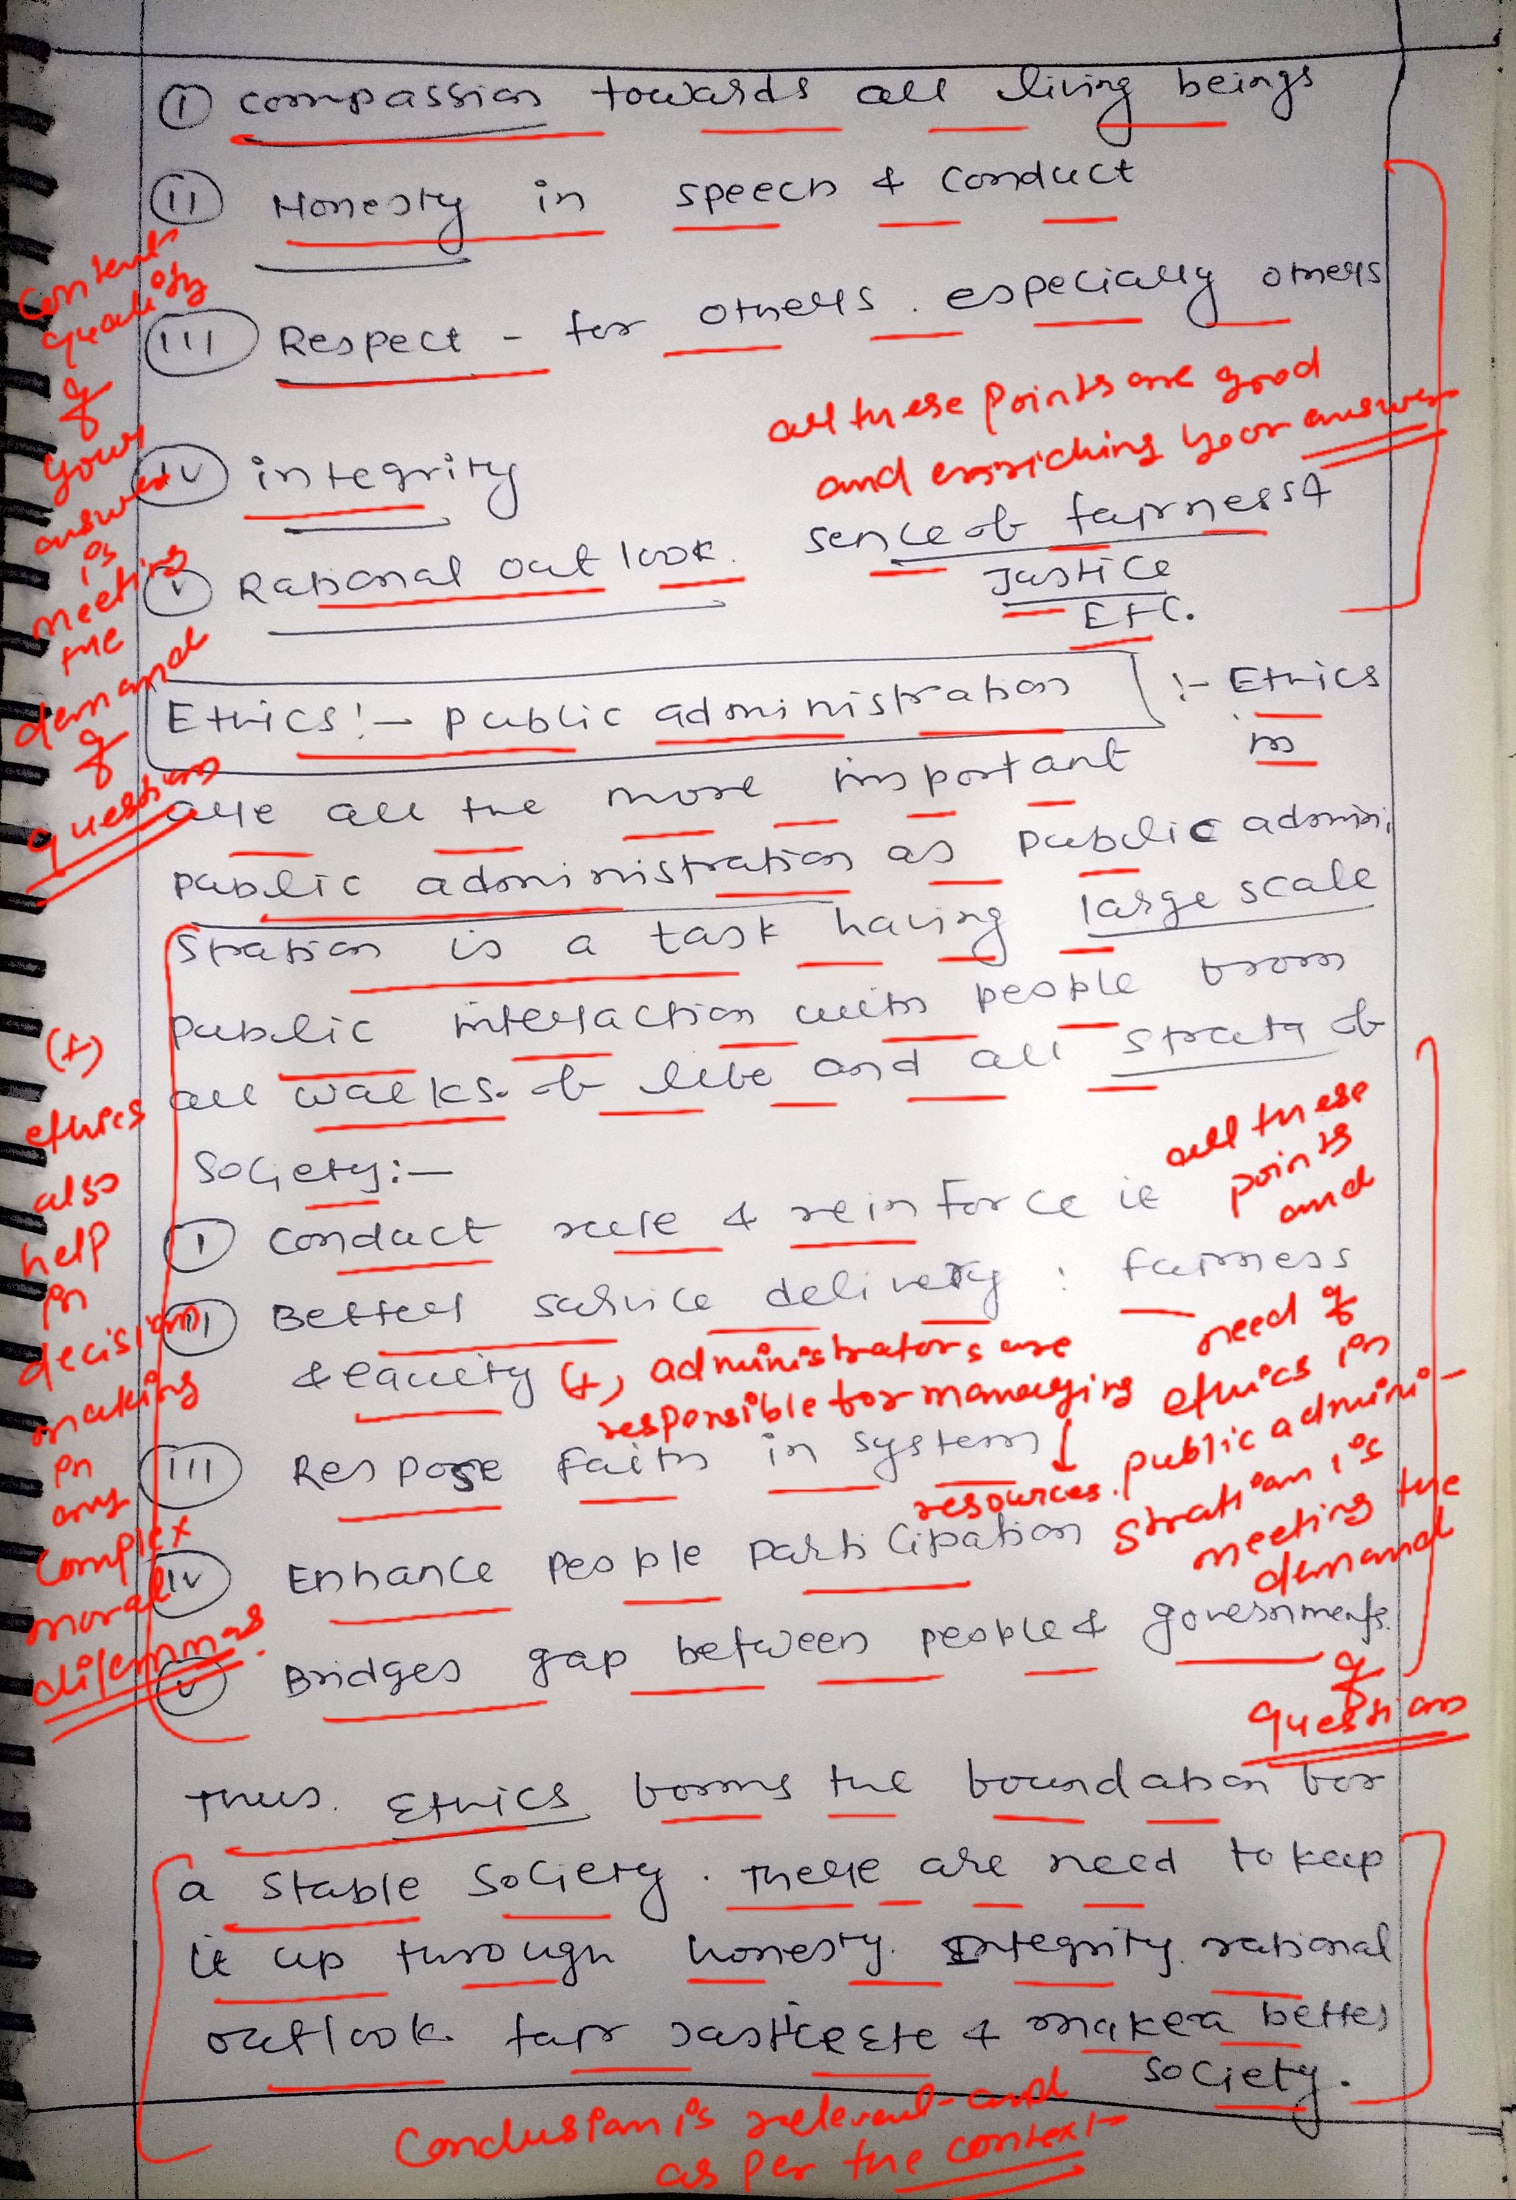 (i) compassion towards all living beings
(ii) Honesty in speech & conduct
(iii) Respect - for others. especially others
all these points are good
and enriching your answer
(iv) integrity
(v) Rational out look. sence of fairness &
Justice
Etc.
Content
quality
of
your
answer
is
meeting
the
demand
of
question
Ethics:- public administration :- Ethics
in
are all the more important
public administration as public admini
stration is a task having large scale
public interaction with people from
all walks of life and all strata of
society:-
(i) conduct rule & reinforce it
(ii) Better service delivery : fairness
& equity (+) administrators are
responsible for managing
resources.
(iii) Respose faith in system
(iv) Enhance people participation
(v) Bridges gap between people & governments.
all these
points
and
need of
ethics in
public admini-
stration is
meeting the
demand
of
question
(+)
ethics
also
help
in
decision
making
in
any
complex
moral
dilemmas.
Thus. Ethics forms the foundation for
a stable society. There are need to keep
it up through honesty. Integrity. rational
outlook. fair Justice Etc & make a better
society.
Conclusion is relevant and
as per the context